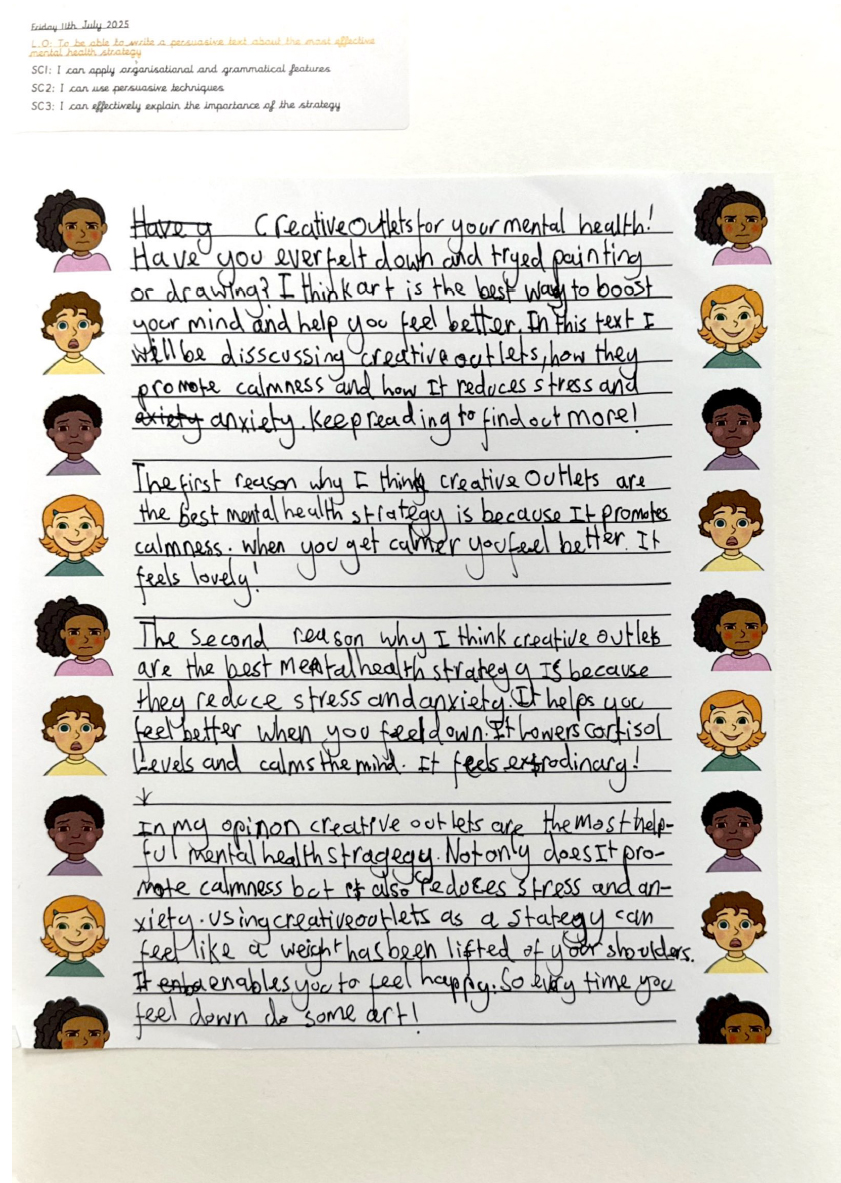 Friday 11th July 2025
L.O: To be able to write a persuasive text about the most effective
mental health strategy
SC1: I can apply organisational and grammatical features
SC2: I can use persuasive techniques
SC3: I can effectively explain the importance of the strategy
Have y Creative Outlets for your mental health!
Have you ever felt down and tryed painting
or drawing? I think art is the best way to boost
your mind and help you feel better. In this text I
will be disscussing creative outlets, how they
promote calmness and how It reduces stress and
axiety anxiety. Keep reading to find out more!
The first reason why I think creative Outlets are
the best mental health strategy is because It promotes
calmness. When you get calmer you feel better. It
feels lovely!
The second reason why I think creative outlets
are the best mental health strategy Is because
they reduce stress and anxiety. It helps you
feel better when you feel down. It lowers cortisol
Levels and calms the mind. It feels extrodinary!
In my opinon creative outlets are the most help-
ful mental health stragegy. Not only does It pro-
mote calmness but it also reduces stress and an-
xiety. Using creative outlets as a stategy can
feel like a weight has been lifted of your shoulders.
It enba enables you to feel happy. So every time you
feel down do some art!